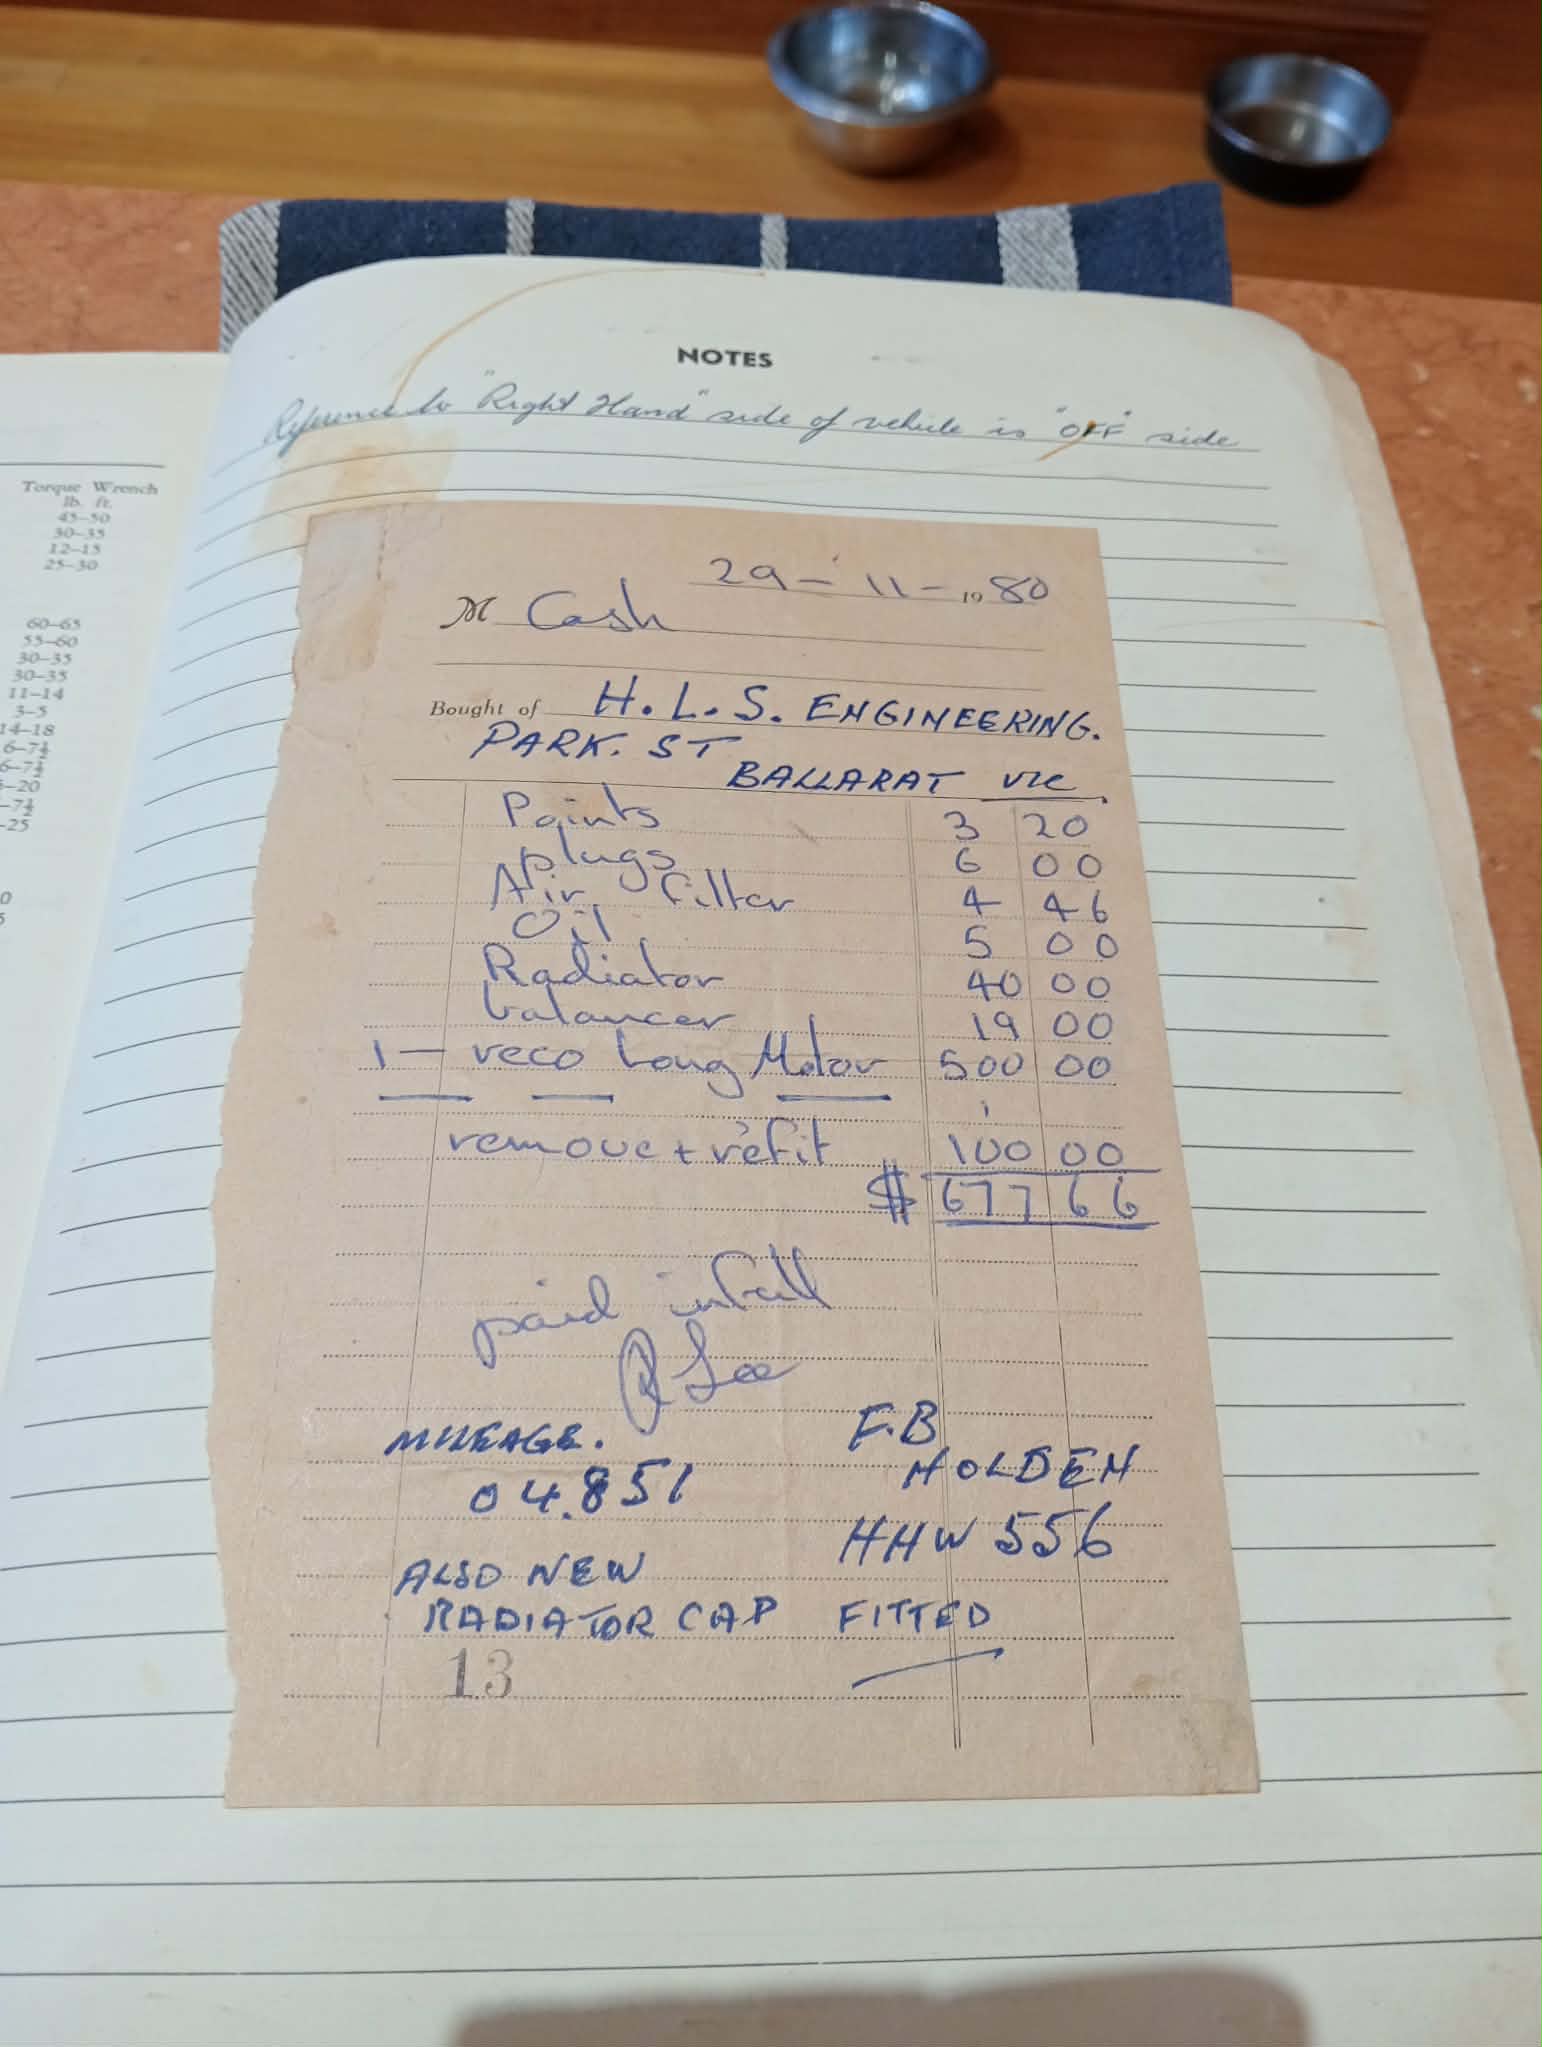 NOTES
Reference to "Right Hand" side of vehicle is "OFF" side
Torque Wrench
lb. ft.
45–50
30–35
12–15
25–30
60–65
55–60
30–35
30–35
11–14
3–5
14–18
6–7½
6–7½
–20
–7½
–25
29 – 11 – 1980
M Cash
Bought of H.L.S. ENGINEERING.
PARK. ST
BALLARAT VIC
Points 3 20
plugs 6 00
Air filter 4 46
Oil 5 00
Radiator 40 00
balancer 19 00
1 – reco Long Motor 500 00
remove + refit 100 00
$ 677 66
paid in full
R Lee
MILEAGE.
04.851
F.B
HOLDEN
HHW 556
ALSO NEW
RADIATOR CAP FITTED
13